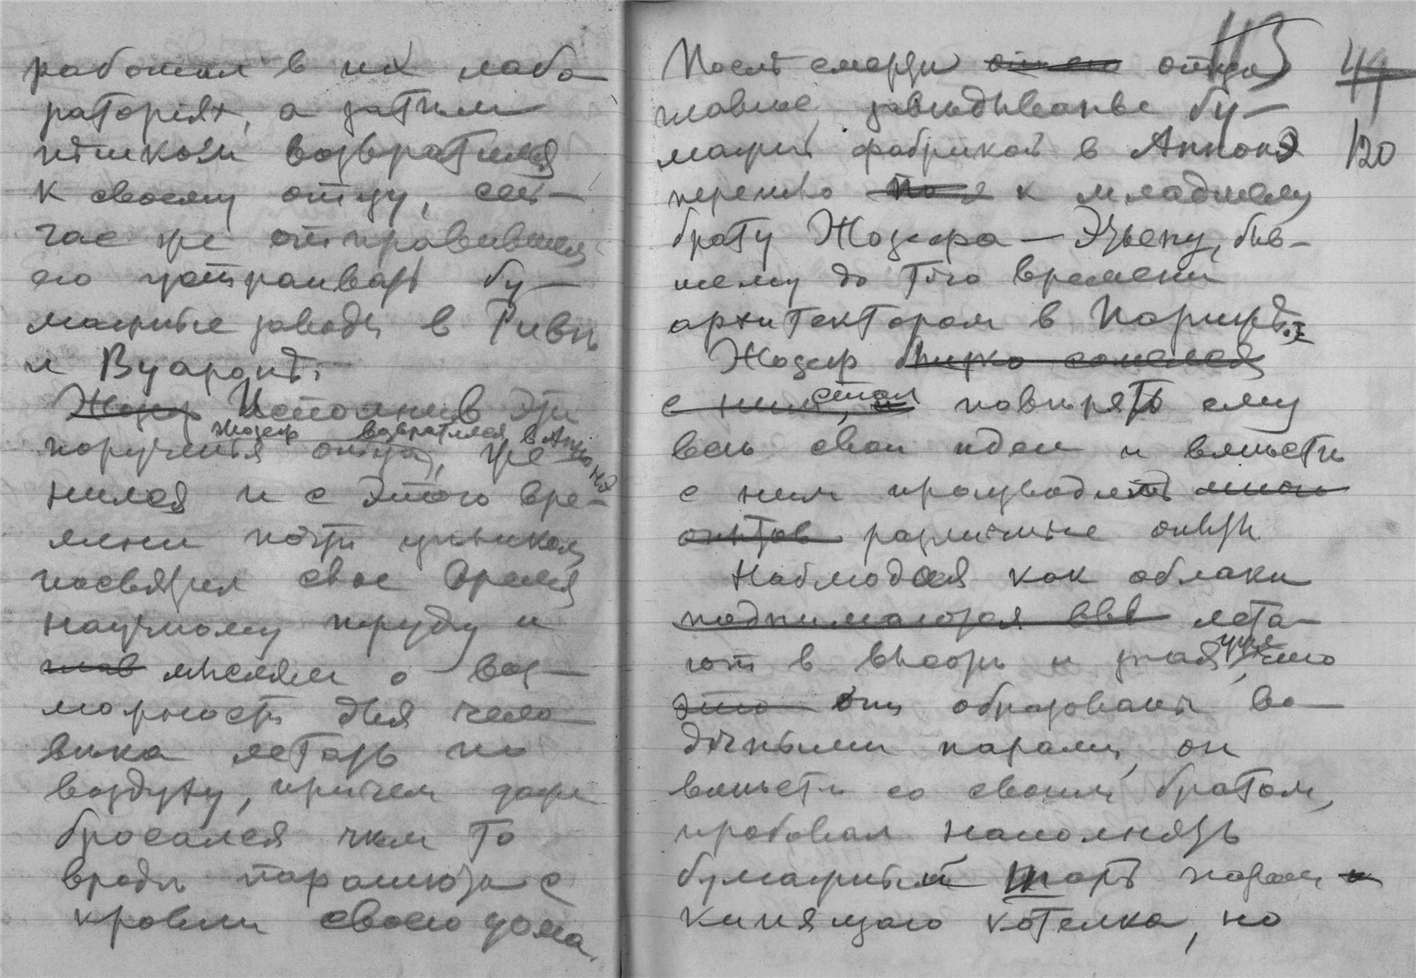 работал в их лабо-
раториях, а затем
пешком возвратился
к своему отцу, сей-
час же отправившем
его устраивать бу-
мажные заводы в Риви
и Вуароне.
Жозеф Исполнив эти
Жозеф возвратился в Анноне
поручения отца, же-
нился и с этого вре-
мени почти целиком
посвятил свое время
научному труду и
мыслям о воз-
можности для чело-
века летать по
воздуху, причем даже
бросался чем то
вроде парашюта с
кровли своего дома.
113
После смерти его отца 44
главное заведыванье бу-
мажной фабрикой в Анноне 120
перешло к младшему
брату Жозефа — Этьену, быв-
шему до того времени
архитектором в Париже.
Жозеф близко сошелся
с ним, и стал поверять ему
все свои идеи и вместе
с ним производить много
опытов различные опыты.
Наблюдая как облака
поднимаются ввы лета-
ют в высоте и зная уже, что
это они образованы во-
дяными парами, он
вместе со своим братом,
пробовал наполнять
бумажный шар паром
кипящаго котелка, но